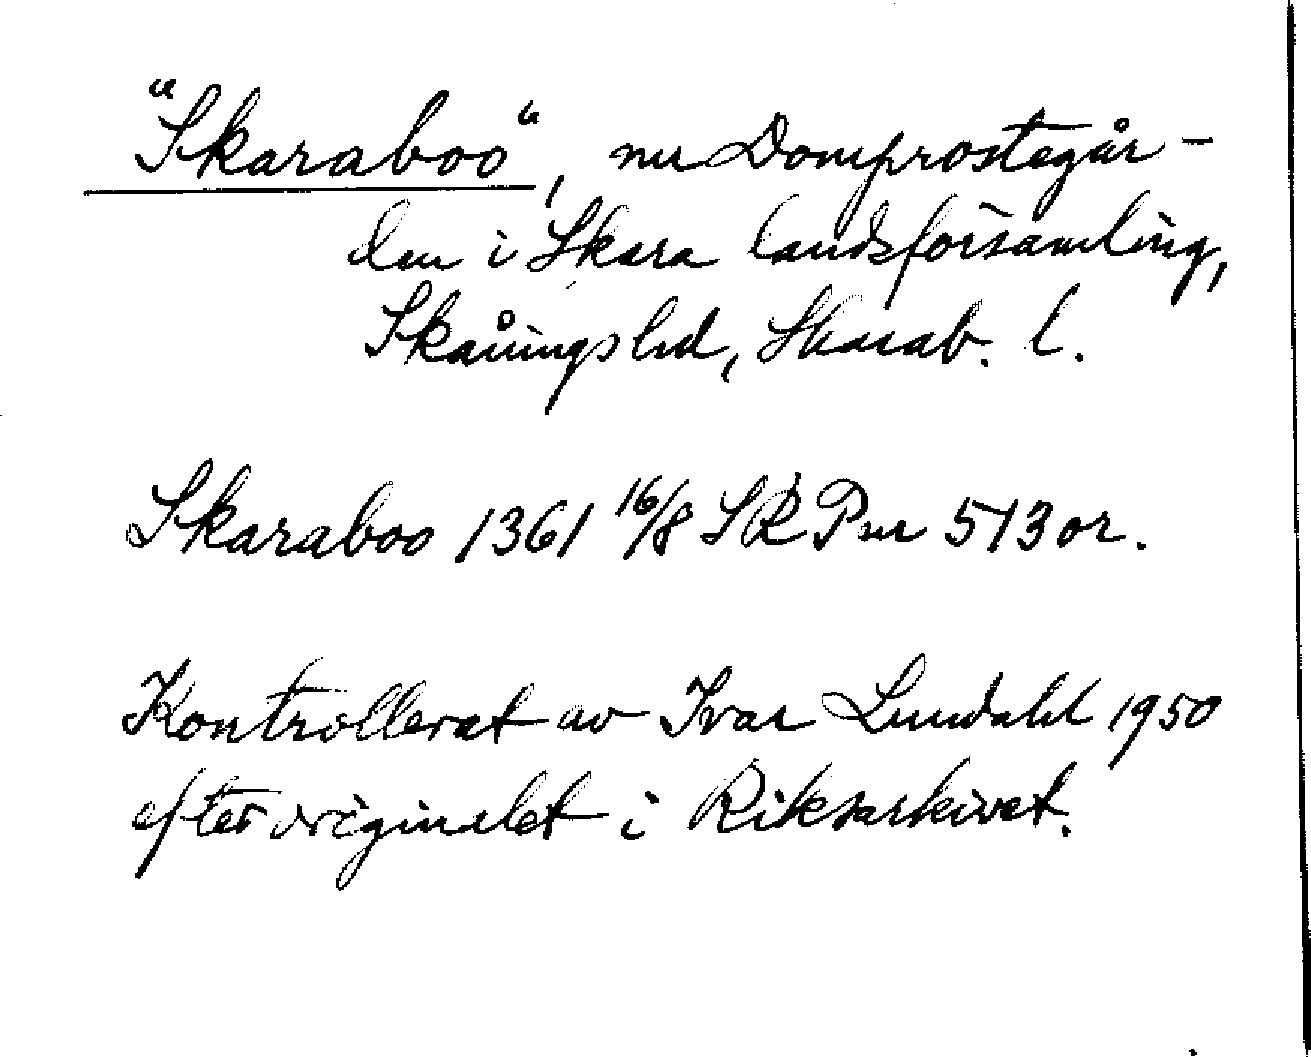 "Skaraboo", nu Domprostegår-
den i Skara landsförsamling,
Skånings hd, Skarab. l.
Skaraboo 1361 16/8 SRP nr 513 or.
Kontrollerat av Ivar Lundahl 1950
efter originalet i Riksarkivet.